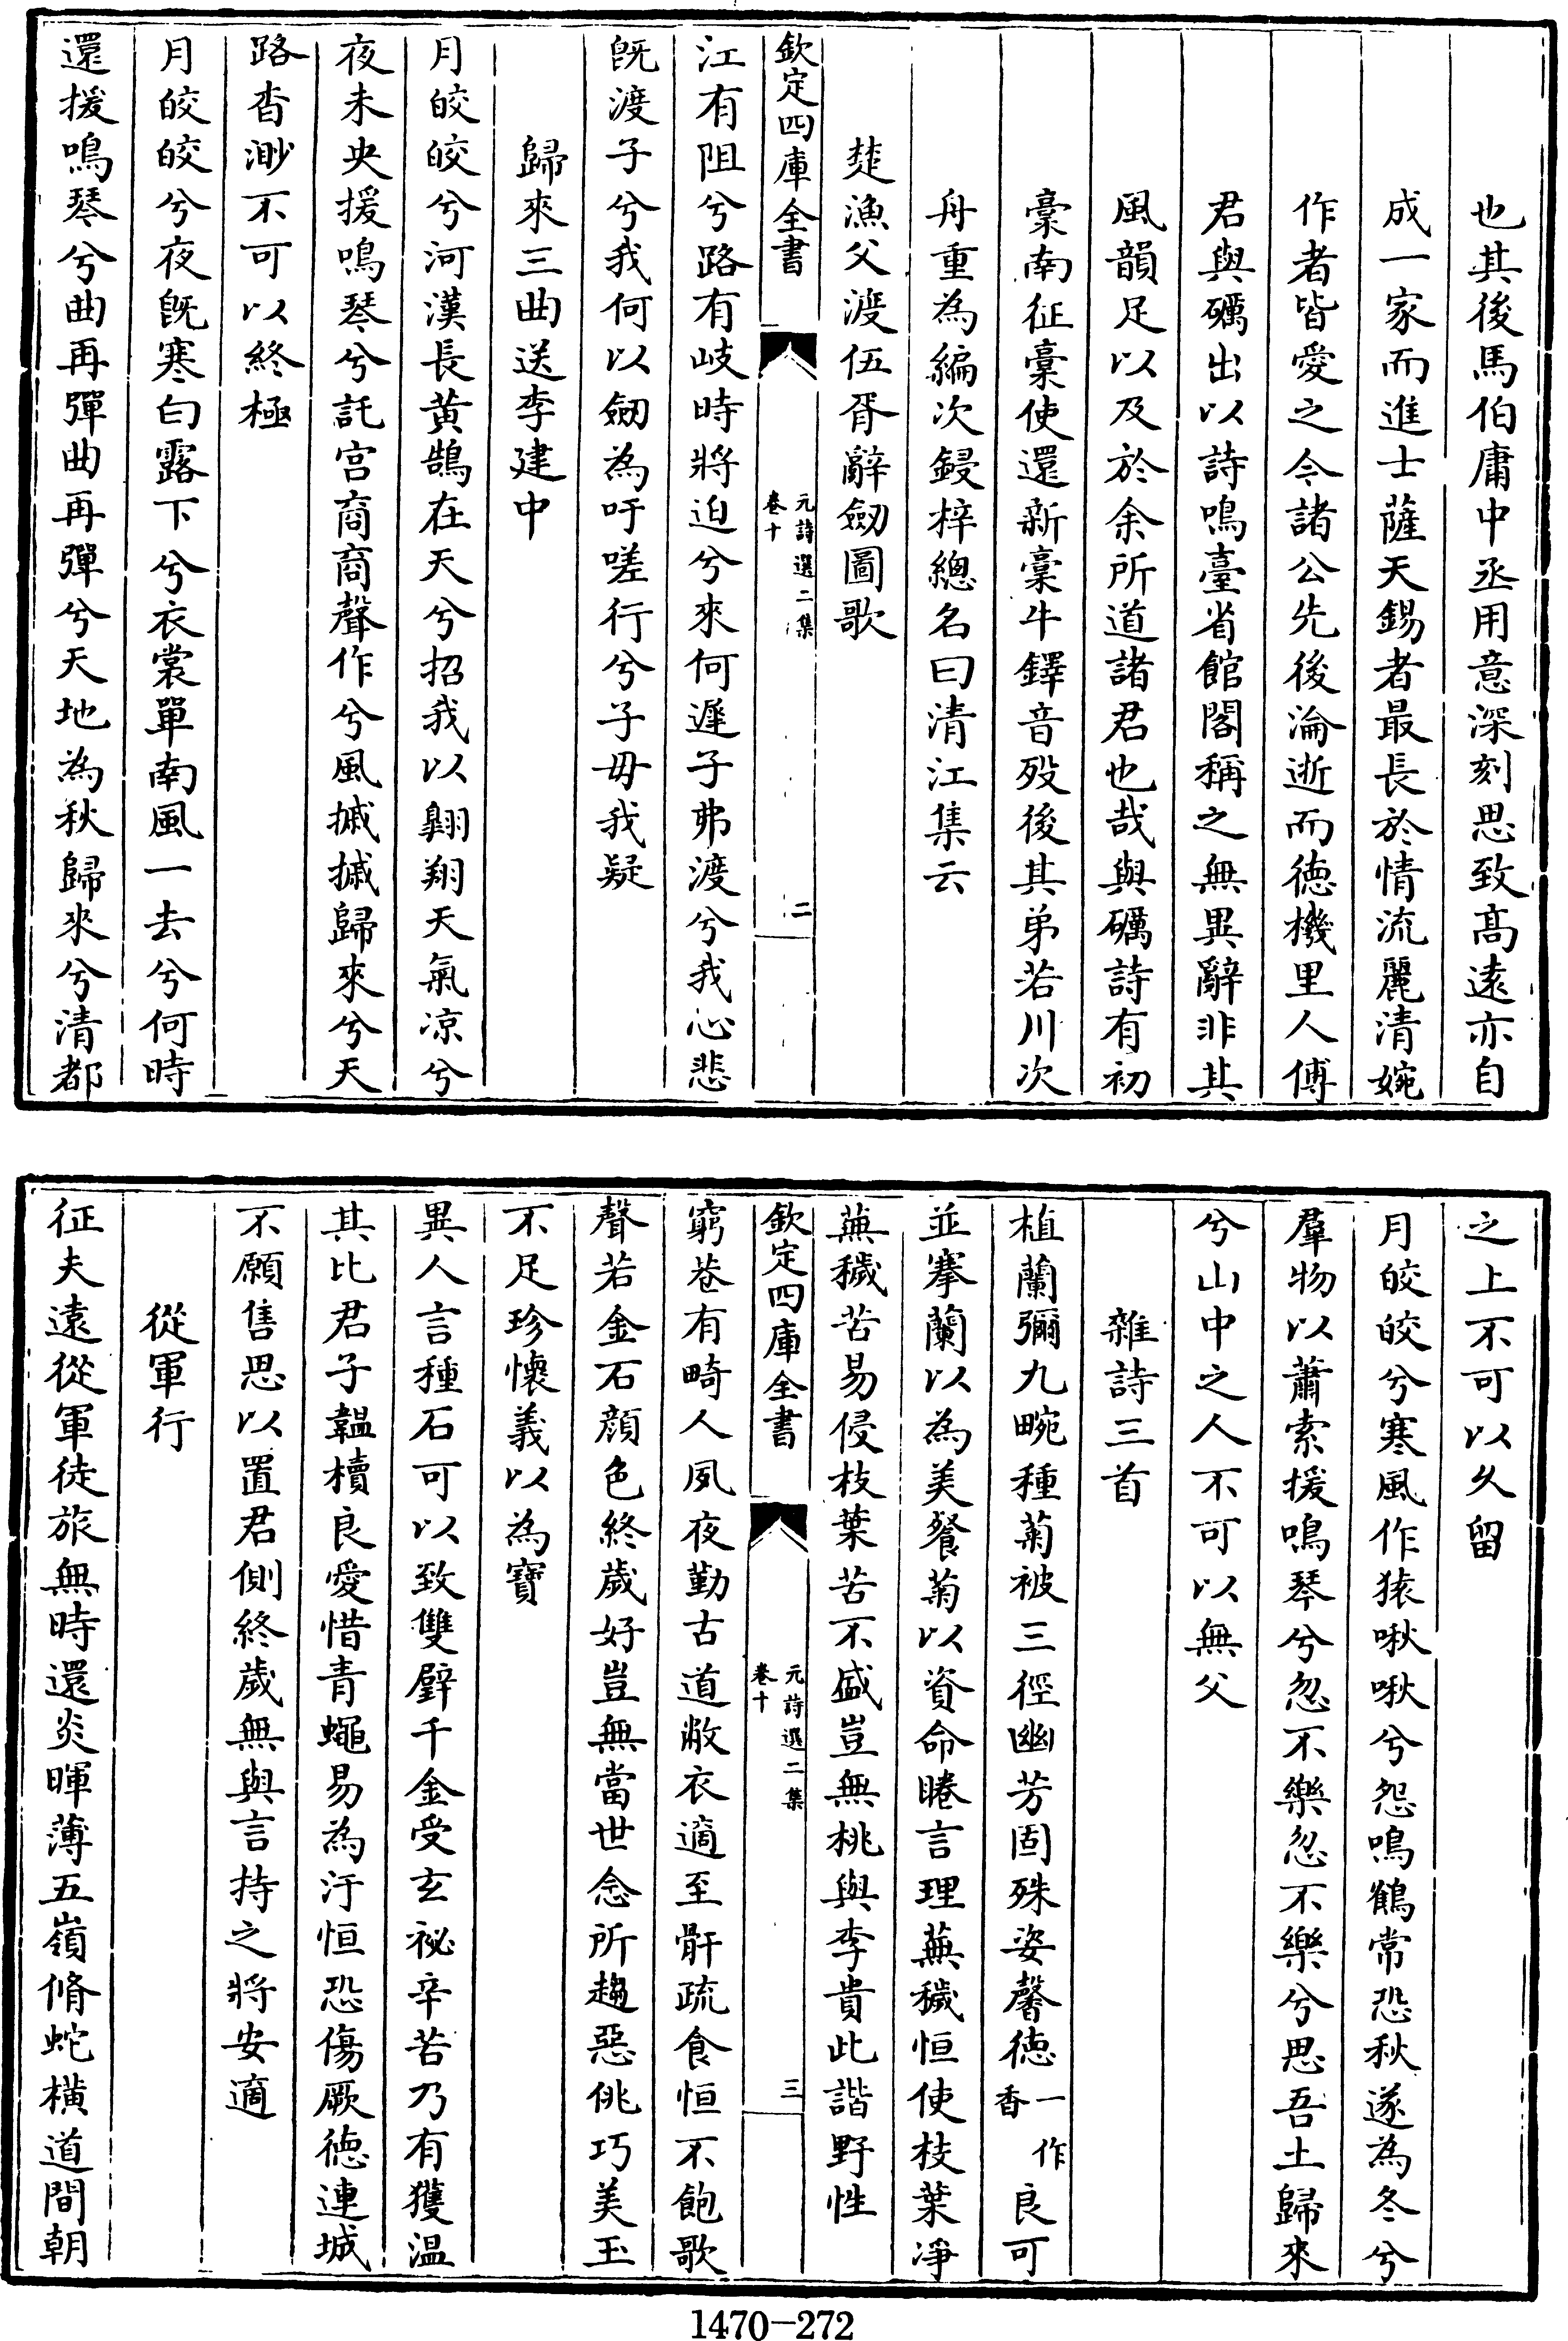 也其後馬伯庸中丞用意深刻思致髙遠亦自
成一家而進士薩天錫者最長於情流麗清婉
作者皆愛之今諸公先後淪逝而德機里人傅
君與礪出以詩鳴臺省館閣稱之無異辭非其
風韻足以及於余所道諸君也哉與礪詩有初
稾南征稾使還新稾牛鐸音殁後其弟若川次
舟重為編次鋟梓總名曰清江集云
楚漁父渡伍胥辭劒圖歌
欽定四庫全書
元詩選二集
卷十
二
江有阻兮路有岐時將迫兮來何遲子弗渡兮我心悲
既渡子兮我何以劒為吁嗟行兮子毋我疑
歸來三曲送李建中
月皎皎兮河漢長黄鵠在天兮招我以翺翔天氣凉兮
夜未央援鳴琴兮託宫商商聲作兮風摵摵歸來兮天
路杳渺不可以終極
月皎皎兮夜既寒白露下兮衣裳單南風一去兮何時
還援鳴琴兮曲再彈曲再彈兮天地為秋歸來兮清都
之上不可以久留
月皎皎兮寒風作猿啾啾兮怨鳴鶴常恐秋遂為冬兮
羣物以蕭索援鳴琴兮忽不樂忽不樂兮思吾土歸來
兮山中之人不可以無父
雜詩三首
植蘭彌九畹種菊被三徑幽芳固殊姿馨德一作香良可
並搴蘭以為美餐菊以資命睠言理蕪穢恒使枝葉凈
蕪穢苦易侵枝葉苦不盛豈無桃與李貴此諧野性
欽定四庫全書
元詩選二集
卷十
三
窮巷有畸人夙夜勤古道敝衣適至骭疏食恒不飽歌
聲若金石顔色終歲好豈無當世念所趨惡佻巧美玉
不足珍懷義以為寶
異人言種石可以致雙璧千金受玄祕辛苦乃有獲温
其比君子韞櫝良愛惜青蠅易為汙恒恐傷厥德連城
不願售思以置君側終歲無與言持之將安適
從軍行
征夫遠從軍徒旅無時還炎暉薄五嶺脩蛇橫道間朝
1470-272